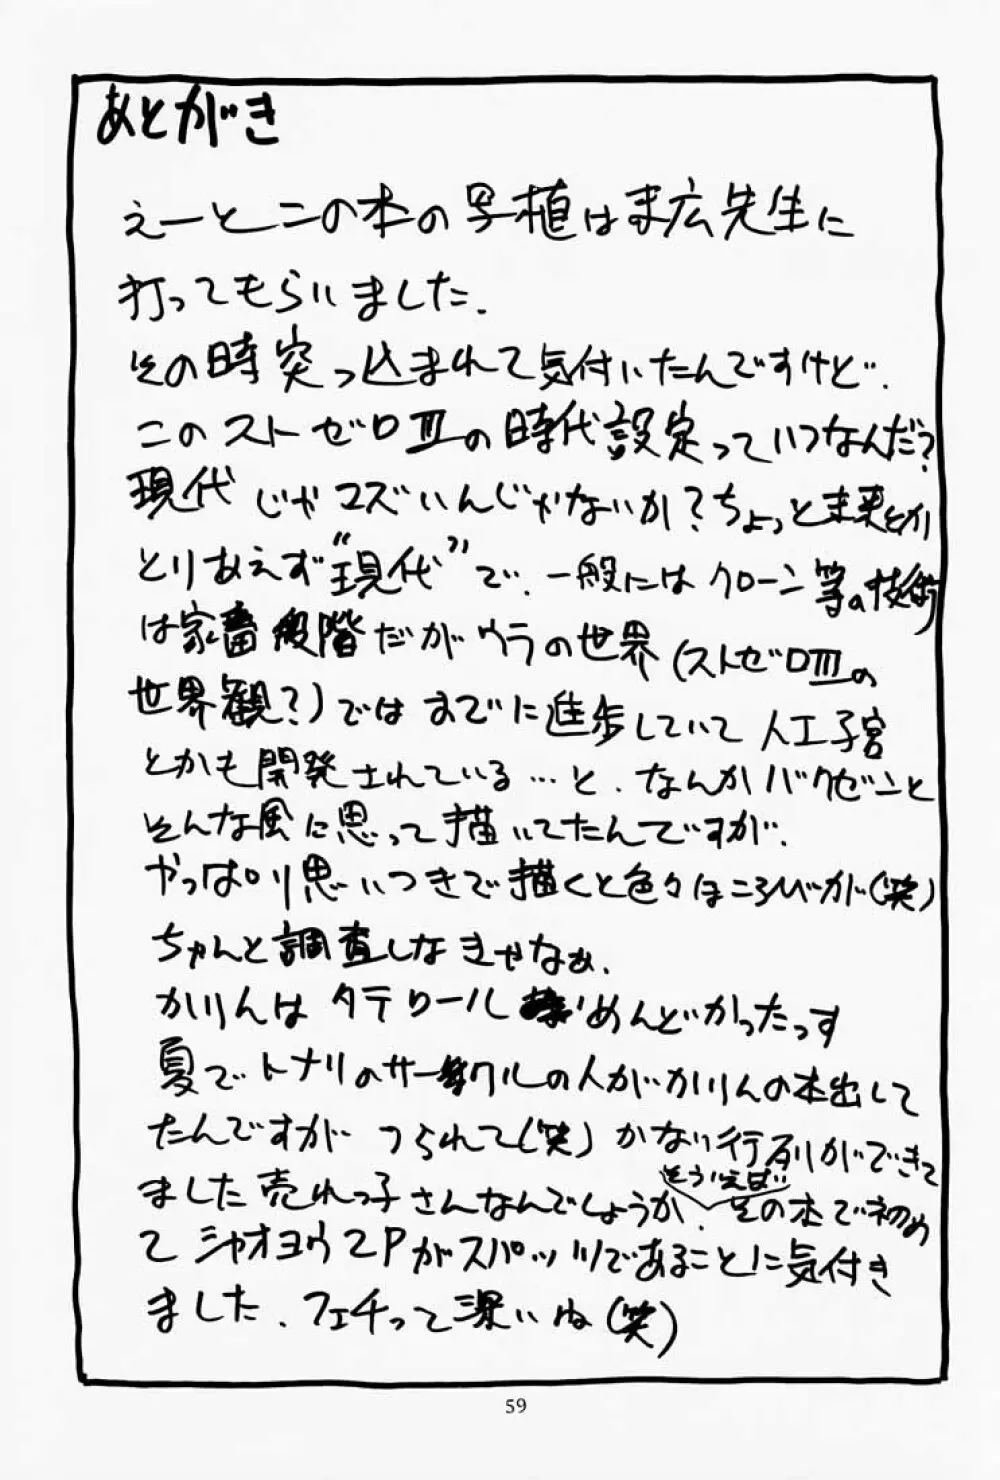 あとがき
えーとこの本の写植は末広先生に
打ってもらいました.
その時突っ込まれて気付いたんですけど.
このストゼロⅢの時代設定っていつなんだ?
現代じゃマズいんじゃないか?ちょっと未来とか
とりあえず“現代”で. 一般にはクローン等の技術
は家畜段階だがウラの世界(ストゼロⅢの
世界観?)ではすでに進歩していて人工子宮
とかも開発されている…と. なんかバクゼンと
そんな風に思って描いてたんですが.
やっぱり思いつきで描くと色々ほころびが(笑)
ちゃんと調査しなきゃなぁ.
かりんはタテロールがめんどかったっす
夏でトナリのサークルの人がかりんの本出して
たんですが つられて(笑)かなり行列ができて
ました売れっ子さんなんでしょうか. そういえば その本で初め
て シャオユウ2Pがスパッツであることに気付き
ました. フェチって深いね(笑)
59